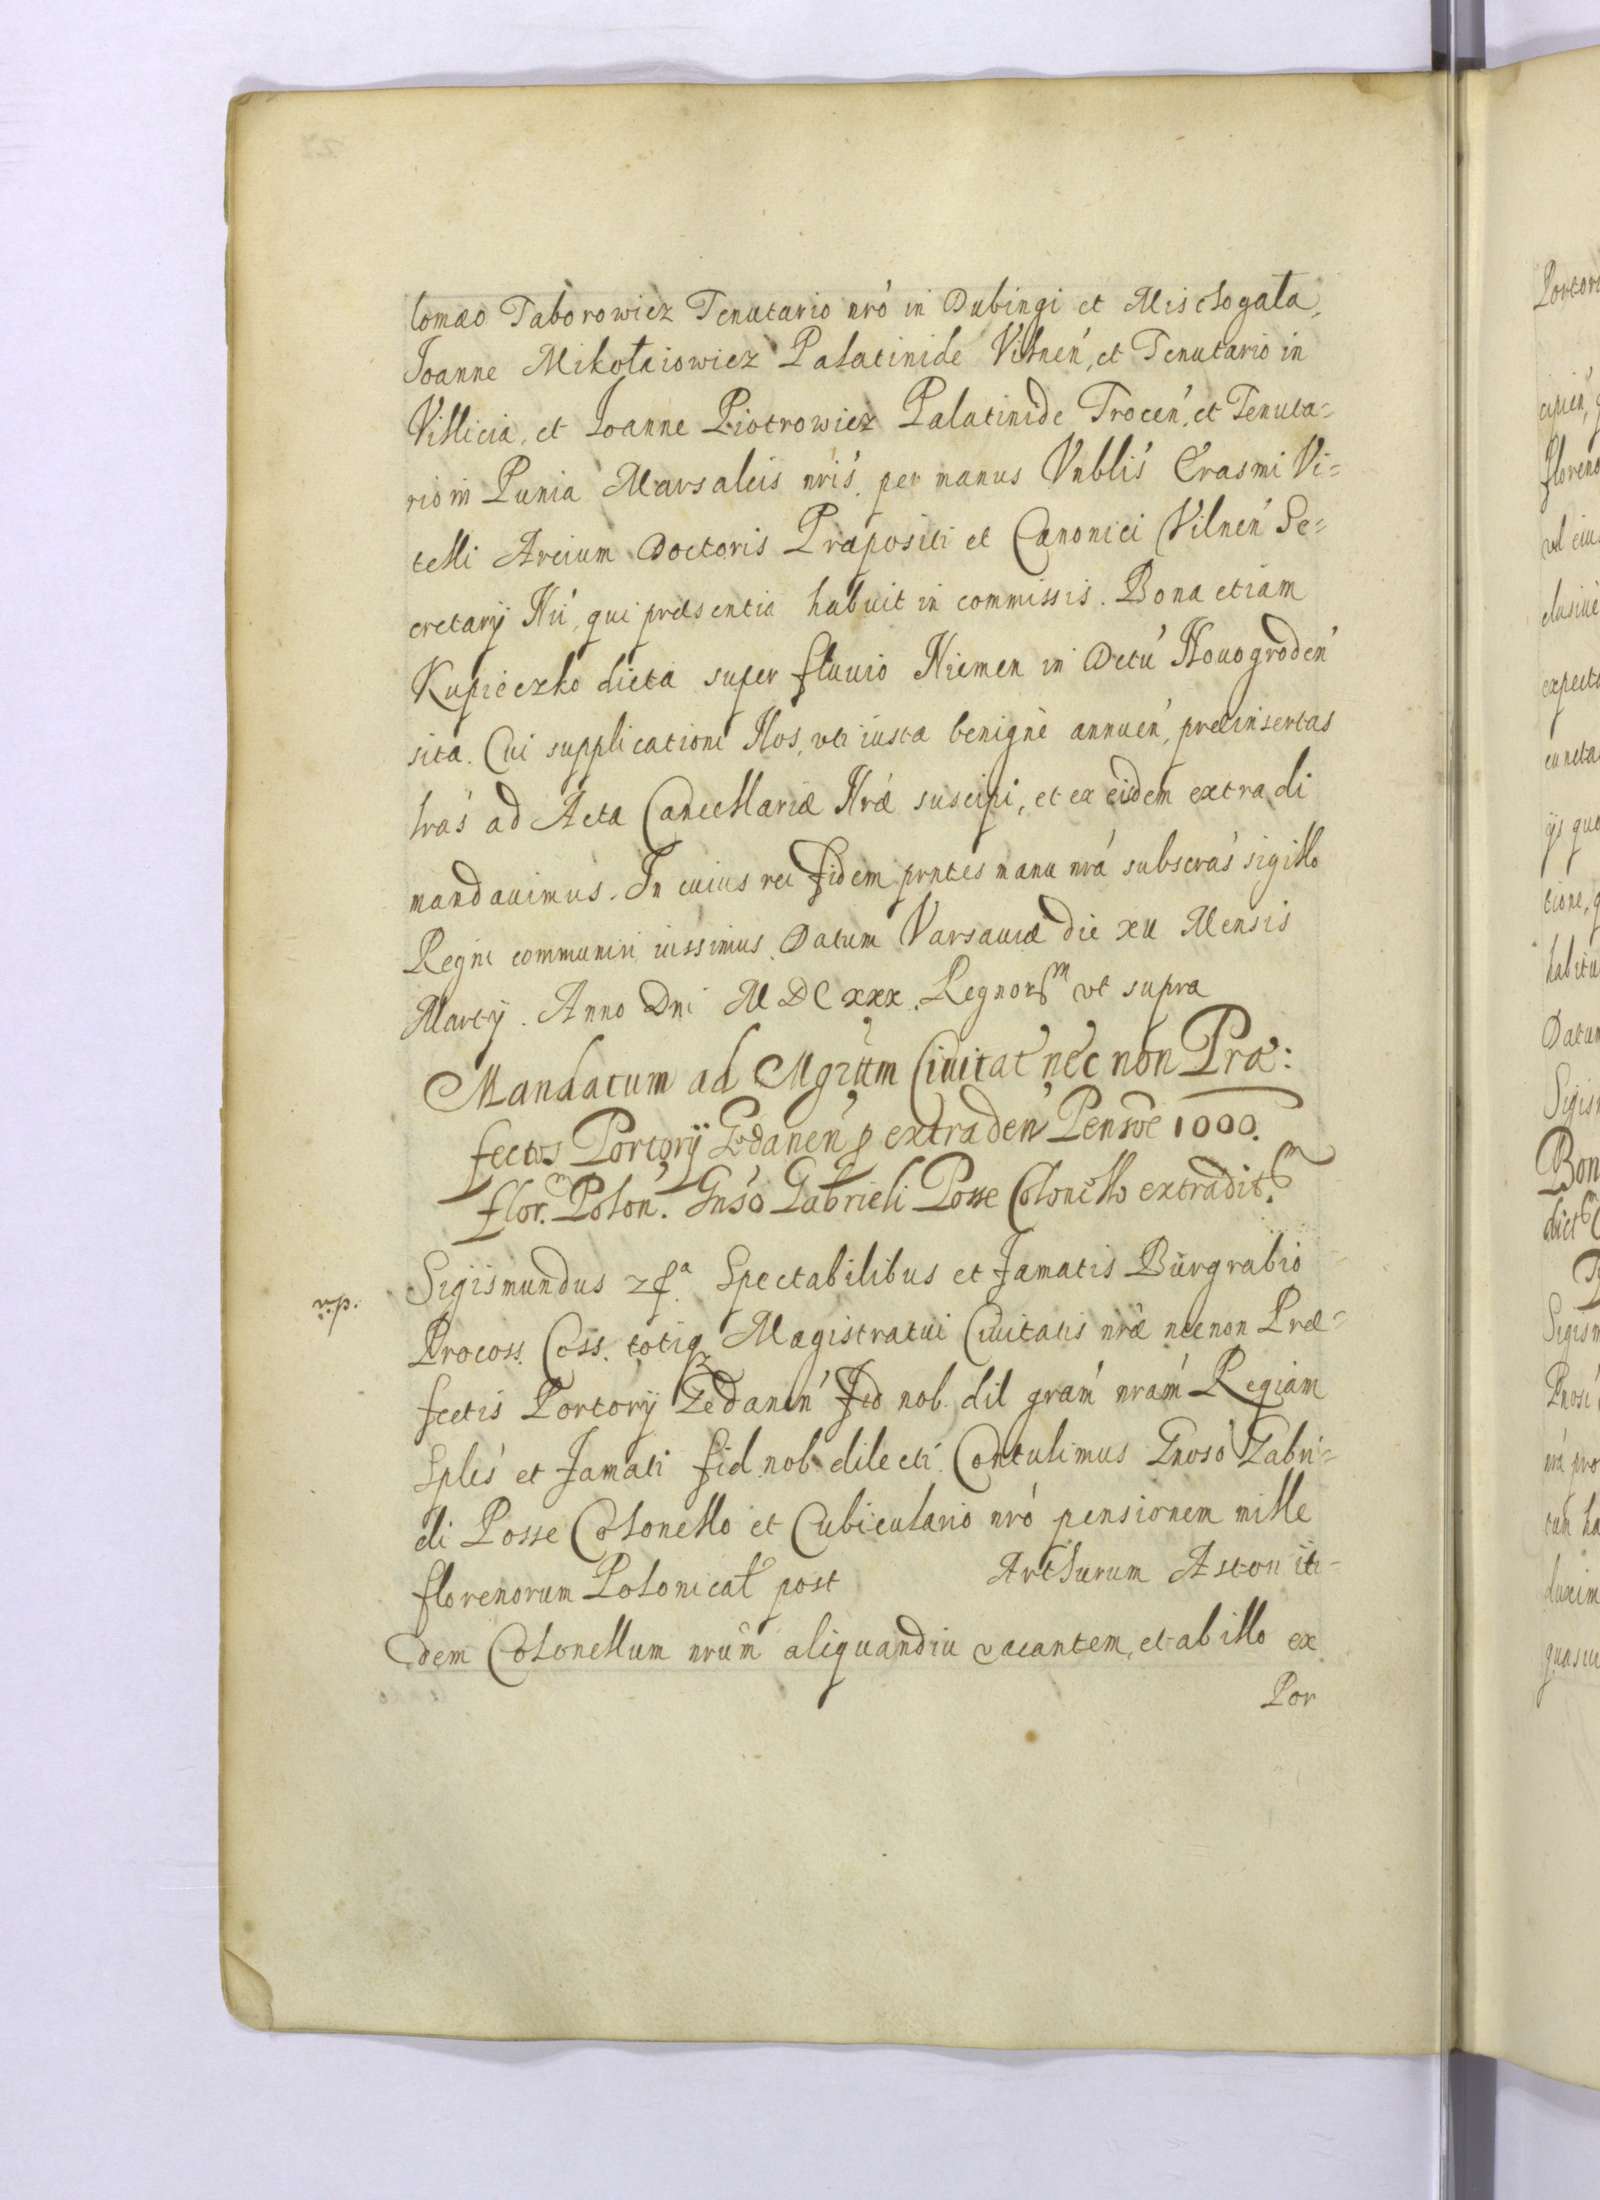 lomæo Taborowicz Tenutario nró in Dubingi et Mischogała,
Joanne Mikołaiowicz Palatinide Vilnen, et Tenutario in
Villicia, et Joanne Piotrowicz Palatinide Trocen, et Tenuta=
rio in Punia Marsalcis nris, per manus Vnblis Erasmi Vi=
telli Artium Doctoris Præpositi et Canonici Vilnen Se=
cretarij Nri, qui præsentia habuit in commissis. Bona etiam
Kupieczko dicta super fluvio Niemen in Dctu Nouogroden
sita. Cui supplicationi Nos, vti iusta benignè annuen, præinsertas
lras ad Acta Cancellariæ Nræ suscipi, et ex eisdem extradi
mandauimus. In cuius rei fidem prntes manu nrá subscras sigillo
Regni communiri iussimus. Datum Varsauiæ die xv Mensis
Martij. Anno Dni M DC xxx. Regnorm vt supra
Mandatum ad Mgrttm Ciuitat nec non Præ:
fectos Portorij Gedanen p extraden Pensoe 1000.
flor. Polon. Gnso Gabrieli Posse Colonello extradit.
Sigismundus zfa. Spectabilibus et Famatis Burgrabio
v.p.
Procoss. Coss. totiq Magistratui Ciuitatis nræ necnon Præ=
fectis Portorij Gedanen Fid nob. dil gram nram Regiam
Splés et Famati fid nob dilecti. Contulimus Gnoso Gabri=
eli Posse Colonello et Cubiculario nró pensionem mille
florenorum Polonical post Arthurum Aston iti=
dem Colonellum nrum aliquandiu vacantem, et ab illo ex
Por